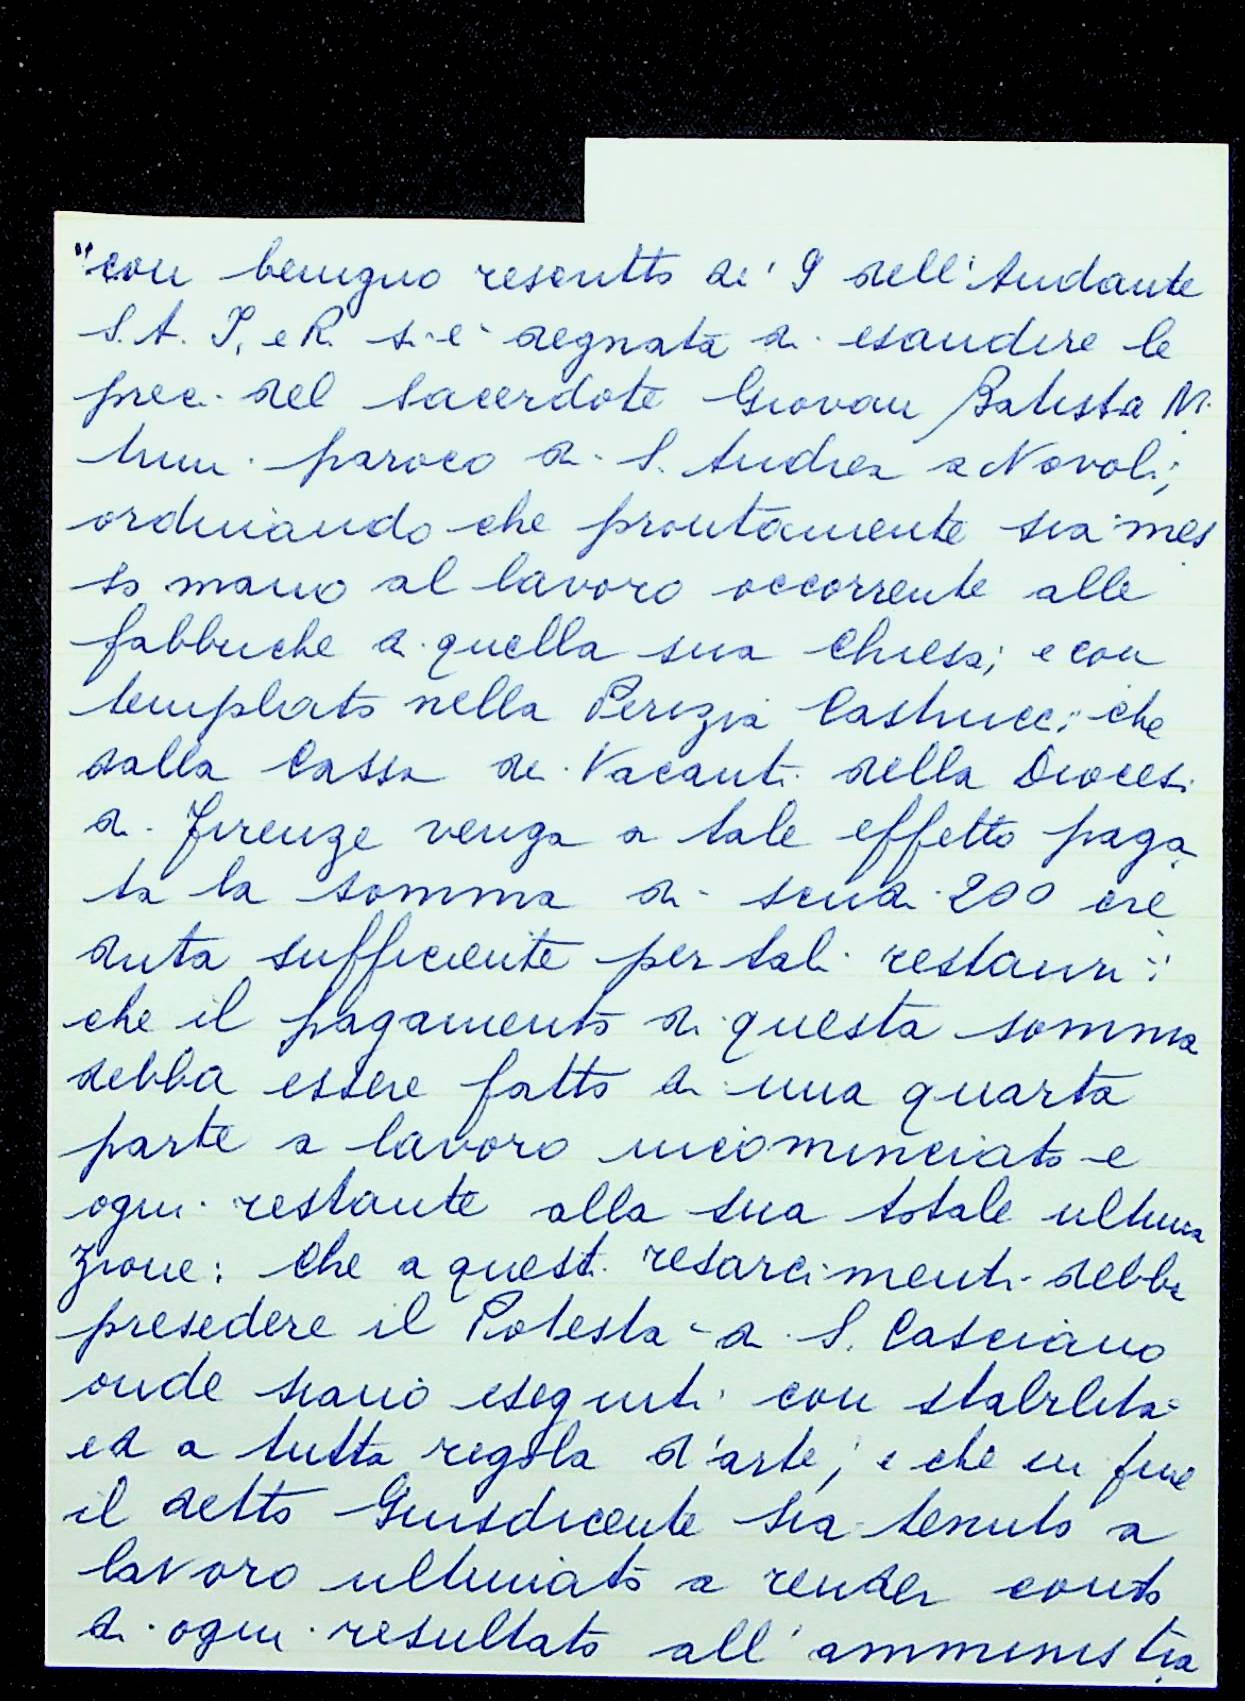 "con benigno rescritto de' 9 dell'Andante
S.A. I. e R. si è degnata di esaudire le
preci del Sacerdote Giovan Batista
paroco di S. Andrea a Novoli;
ordinando che prontamente sia mes
so mano al lavoro occorrente alle
fabbriche di quella sua Chiesa; e con
templato nella Perizia Castrucci: che
dalla Cassa de' Vacanti della Diocesi
di Firenze venga a tale effetto paga
ta la somma di scudi 200 cre
duta sufficiente per tali restauri:
che il pagamento di questa somma
debba essere fatto di una quarta
parte a lavoro incominciato e
ogni restante alla sua totale ultima
zione: che a questi resarcimenti debba
presedere il Potestà di S. Casciano
onde siano eseguiti con stabilità
ed a tutta regola d'arte; e che in fine
il detto Giusdicente sia tenuto a
lavoro ultimato a render conto
di ogni resultato all'amministra